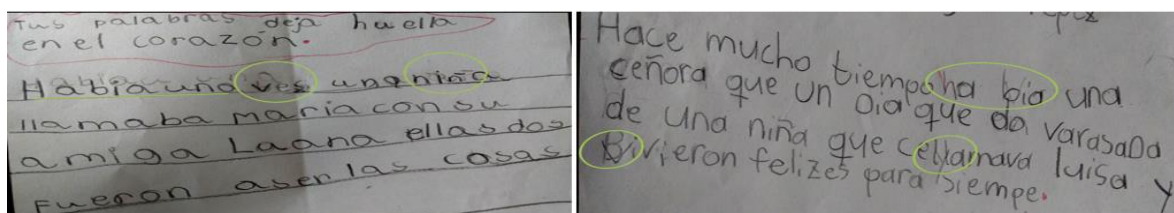 Tus palabras deja huella
en el corazón.
Había una ves una niña
llamaba maría con su
amiga Laana ellas dos
fueron aser las cosas
Hace mucho tiempo ha bia una
señora que un Dia que da varasaDa
de una niña que cellamava luisa y
Bivieron felizes para siempe.